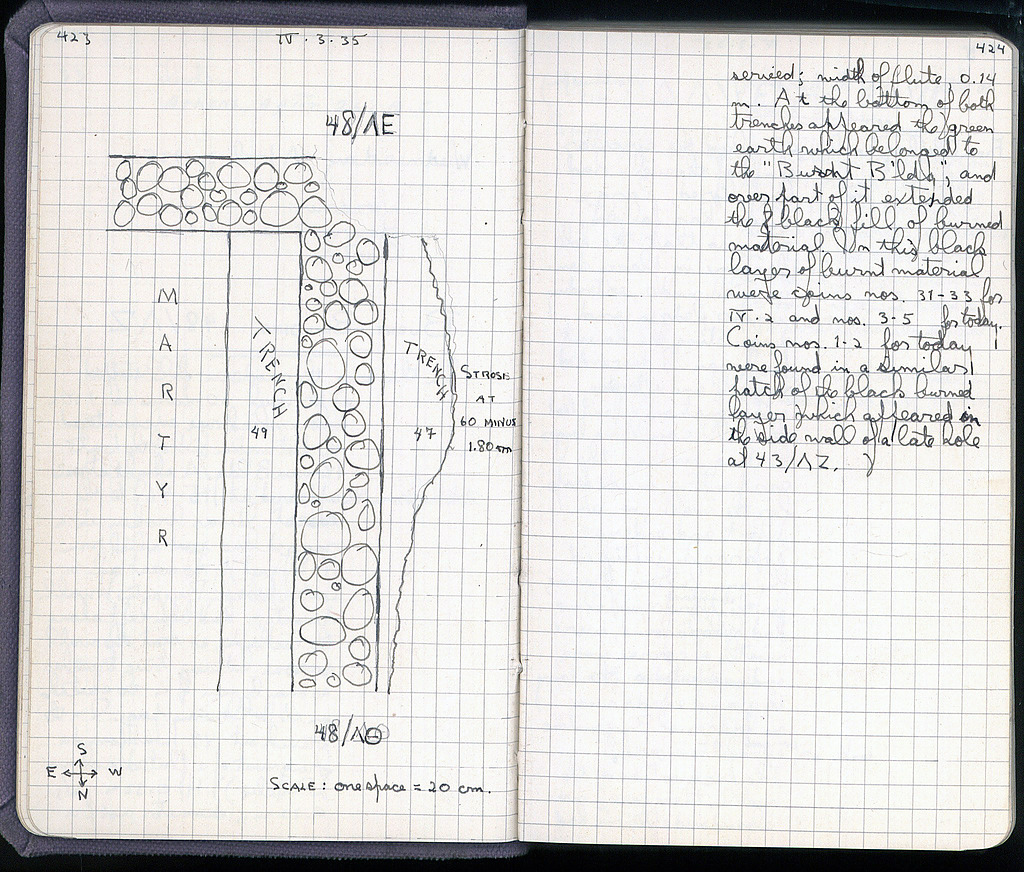 423
IV . 3 . 35
48/ΛE
MARTYR
TRENCH
49
TRENCH
47
STROSIS
AT
60 MINUS
1.80 m
48/ΛΘ
S
E W
N
SCALE: one space = 20 cm.
424
served; width of flute, 0.14
m. At the bottom of both
trenches appeared the green
earth which belonged to
the "Burnt B'ldg", and
over part of it extended
the black fill of burned
material. In this black
layer of burnt material
were coins nos. 31-33 for
IV.2 and nos. 3-5 for today.
Coins nos. 1-2 for today
were found in a similar
patch of the black burned
layer which appeared in
the side wall of a late hole
at 43/ΛZ.